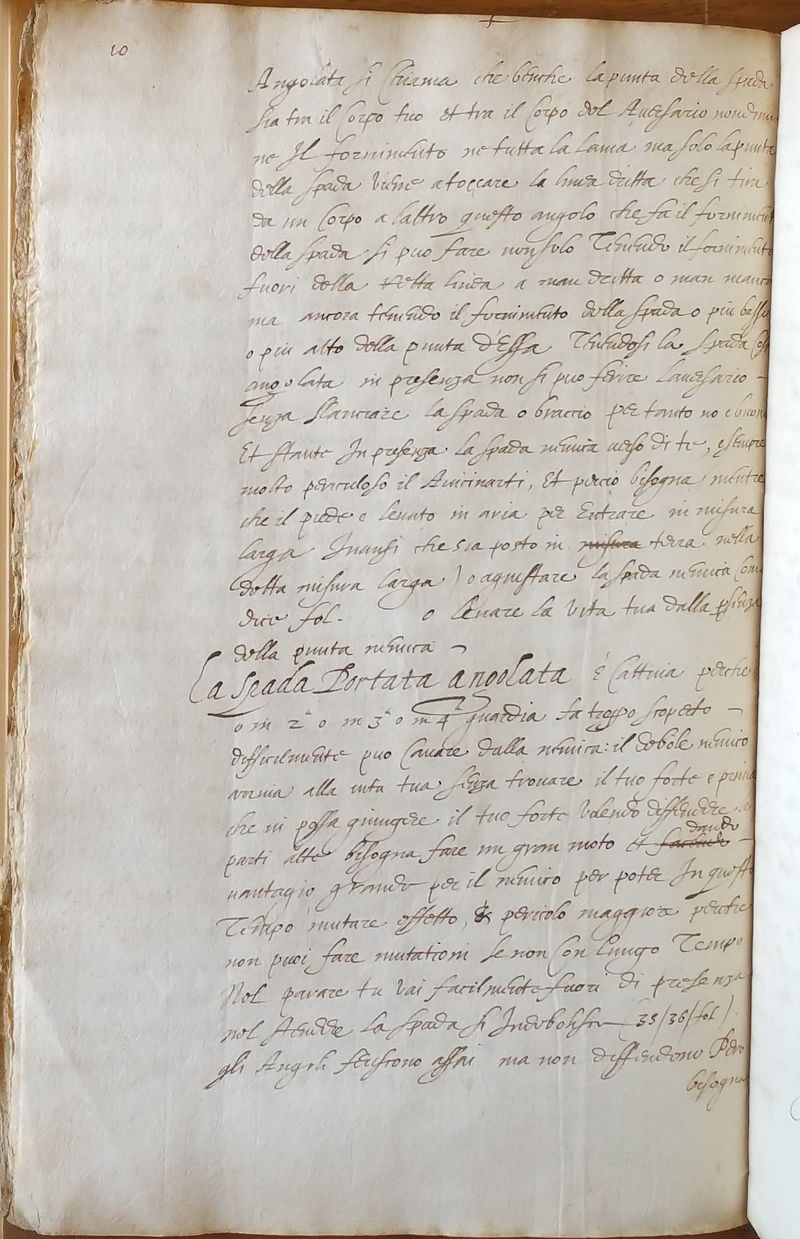 10
Angolata si Chiama che benche la punta della spada
sia tra il Corpo tuo et tra il Corpo del Auersario nondime
ne Il fornimento ne tutta la lama ma solo la punta
della spada viene a toccare la linea dritta che si tira
da un Corpo a laltro questo angolo che fa il forniment
della spada si puo fare non solo Tenendo il fornimento
fuori della retta linea a man dritta o man manca
ma ancora tenendo il fornimento della spada o piu basso
o piu alto della punta d'Essa Tenendosi la spada Cosi
angolata in presenza non si puo ferire lauersario
senza slanciare la spada o braccio per tanto no e buon
Et stante In presenza la spada nemica uerso di te, e sempre
molto periculoso il Auicinarti, Et percio bisogna mentre
che il piede e leuato in aria per Entrare in misura
larga Inansi che sia posto in misura terra nella
detta misura larga ) o aquistare la spada nemica Com
dice fol. o leuare la vita tua dalla psenza
della punta nemica
La spada Portata angolata è Cattiua perche
o in 2ª o in 3ª o in 4ª guardia fa troppo scoperto
difficilmente puo Cauare dalla nemica: il debole nemico
arriua alla uita tua senza trouare il tuo forte e prima
che ui possa giungere il tuo forte Volendo diffendere le
parti alte bisogna fare un gran moto et facendo dando
uantagio grande per il nemico per poter In questo
Tempo mutare effetto, & pericolo maggiore perche
non puoi fare mutationi se non Con lungo Tempo
Nel parare tu vai facilmente fuori di presenza
nel stendere la spada si Indebolisse (35/36/fol).
gli Angoli feriscono assai ma non diffendono Pero
bisogna